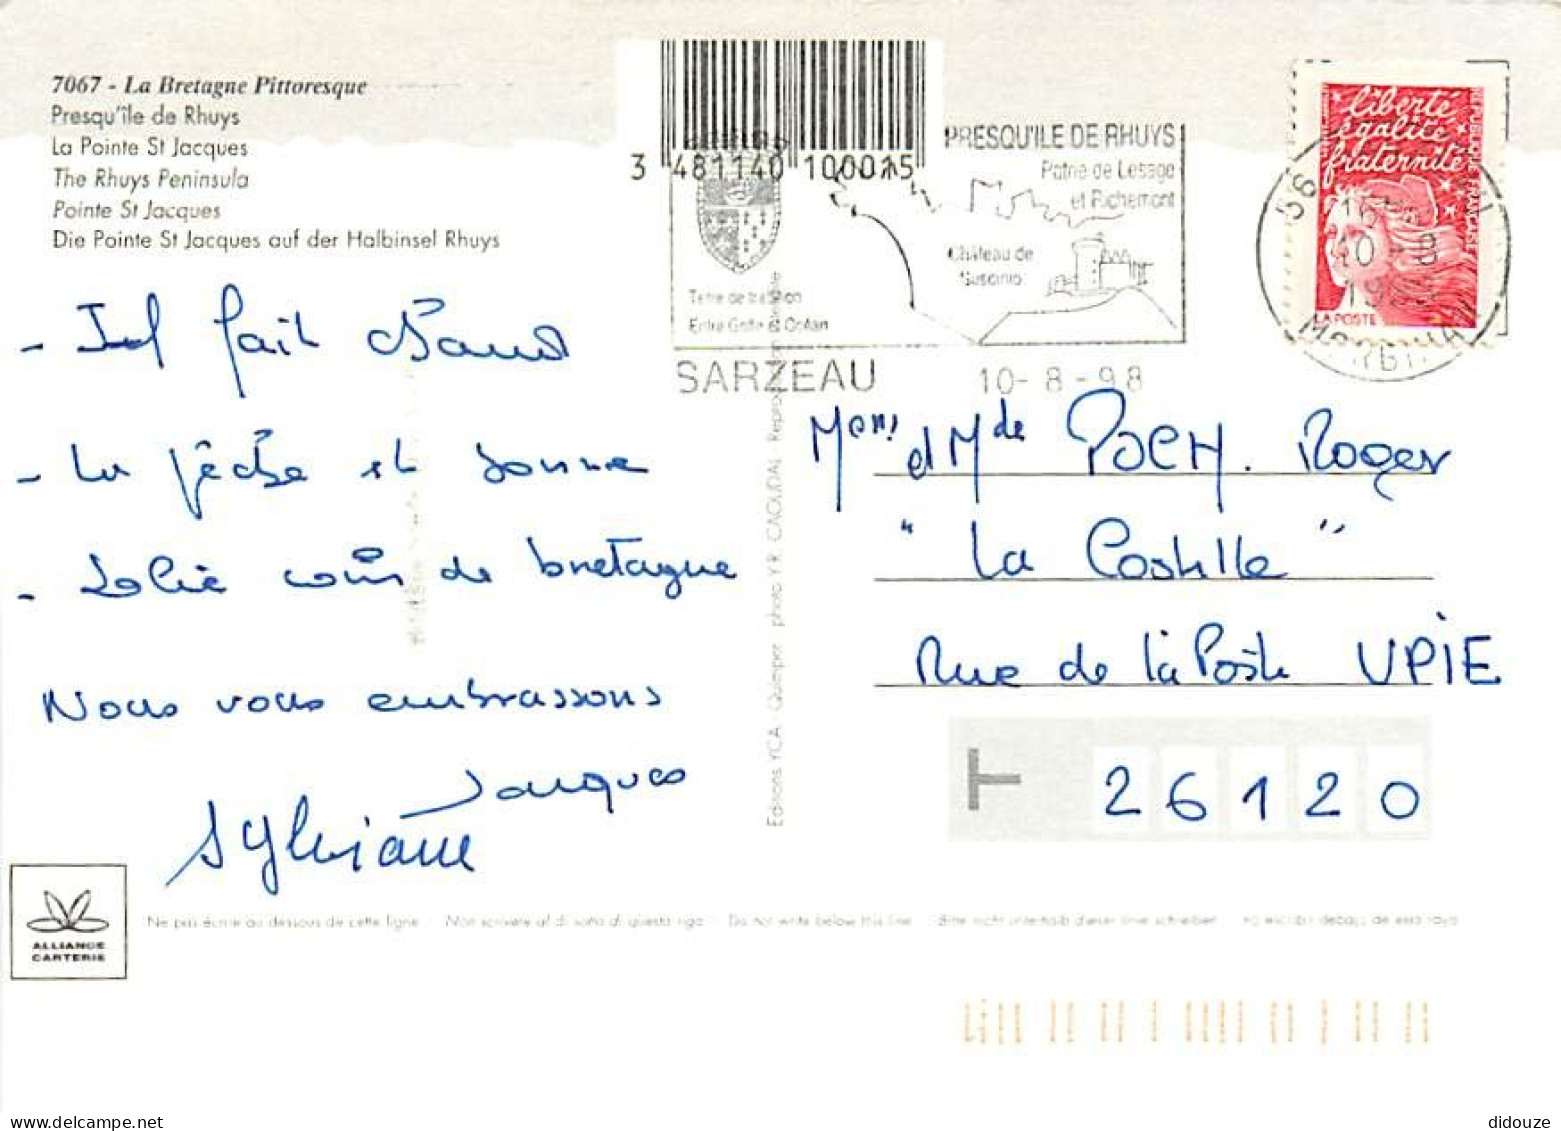 7067 - La Bretagne Pittoresque
Presqu'île de Rhuys
La Pointe St Jacques
The Rhuys Peninsula
Pointe St Jacques
Die Pointe St Jacques auf der Halbinsel Rhuys
3 481140 100015
PRESQU'ILE DE RHUYS
Patrie de Lesage
et Richemont
Château de
Suscinio
Terre de tradition
Entre Golfe et Océan
SARZEAU 10-8-98
liberté
égalité
fraternité
REPUBLIQUE FRANÇAISE
LA POSTE
56
10-8
MORBIHAN
- Il fait chaud
- La pêche est bonne
- Jolie coin de bretagne
Nous vous embrassons
Jacques
Sylviane
Editions YCA - Quimper photo Y.R. CAOUDAL
Mon et Mde POCH. Roger
"La Costille"
Rue de la Poste UPIE
26120
ALLIANCE
CARTERIE
Ne pas écrire au dessous de cette ligne - Non scrivere al di sotto di questa riga - Do not write below this line - Bitte nicht unterhalb dieser linie schreiben
didouze